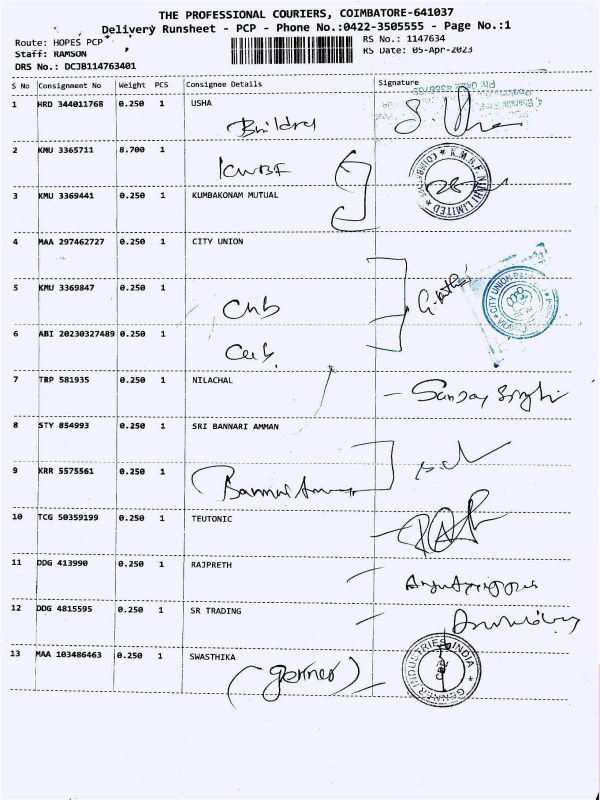 THE PROFESSIONAL COURIERS, COIMBATORE-641037
Delivery Runsheet - PCP - Phone No.:0422-3505555 - Page No.:1
Route: HOPES PCP
RS No.: 1147634
Staff: RAMSON
RS Date: 05-Apr-2023
DRS No.: DCJB114763401
S No Consignment No Weight PCS Consignee Details Signature
1 HRD 344011768 0.250 1 USHA
Builders
2 KMU 3365711 8.700 1
KWBF
3 KMU 3369441 0.250 1 KUMBAKONAM MUTUAL
4 MAA 297462727 0.250 1 CITY UNION
5 KMU 3369847 0.250 1
Cub
6 ABI 20230327489 0.250 1
Cub
7 TRP 581935 0.250 1 NILACHAL
Sanjay Singh
8 STY 854993 0.250 1 SRI BANNARI AMMAN
9 KRR 5575561 0.250 1
Bannari Amman
10 TCG 50359199 0.250 1 TEUTONIC
11 DDG 413990 0.250 1 RAJPRETH
12 DDG 4815595 0.250 1 SR TRADING
13 MAA 103486463 0.250 1 SWASTHIKA
(Genner)
GENNER INDUSTRIES INDIA